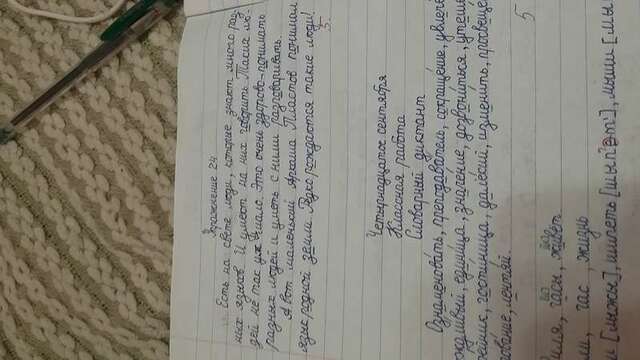 Упражнение 24
Есть на свете люди, которые знают много раз-
ных языков. И умеют на них говорить. Таких лю-
дей не так уж мало. Это очень здорово-понимать
разных людей и уметь с ними разговаривать.
А вот маленький Аркаша Пластов понимал
язык родной земли. Редко рождаются такие люди!
5
Четырнадцатое сентября
Классная работа
Словарный диктант
Ознаменовать, преподаватель, сокращение,
единица, значение, дозвониться,
гостиница, далёкий, изменить,
лентяй.
5
часы, живёт
час, жизнь
[мыжы], шипеть